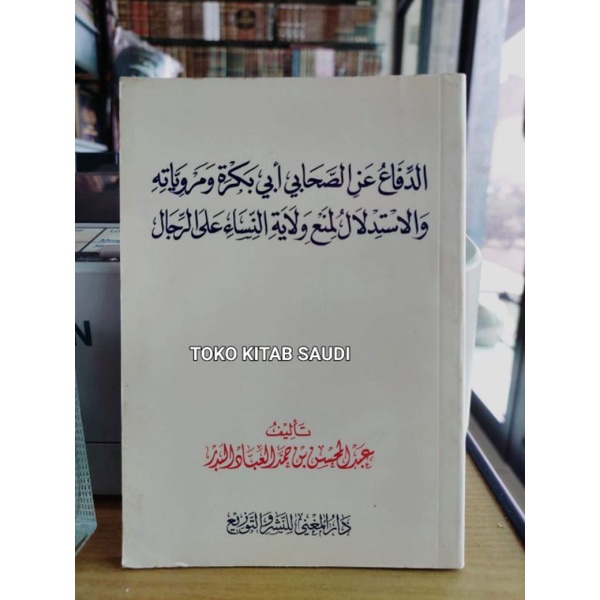 الدِّفَاعُ عَنِ الصَّحَابِي أَبِي بَكْرَة وَمَرْوِيَّاتِهِ
وَالاسْتِدْلَالُ لِمَنْعِ وِلَايَةِ النِّسَاءِ عَلَى الرِّجَالِ
TOKO KITAB SAUDI
تَأليفُ
عبد المحسن بن حمد العباد البدر
دَارُ المُغني لِلنَّشرِ وَالتَّوزيع